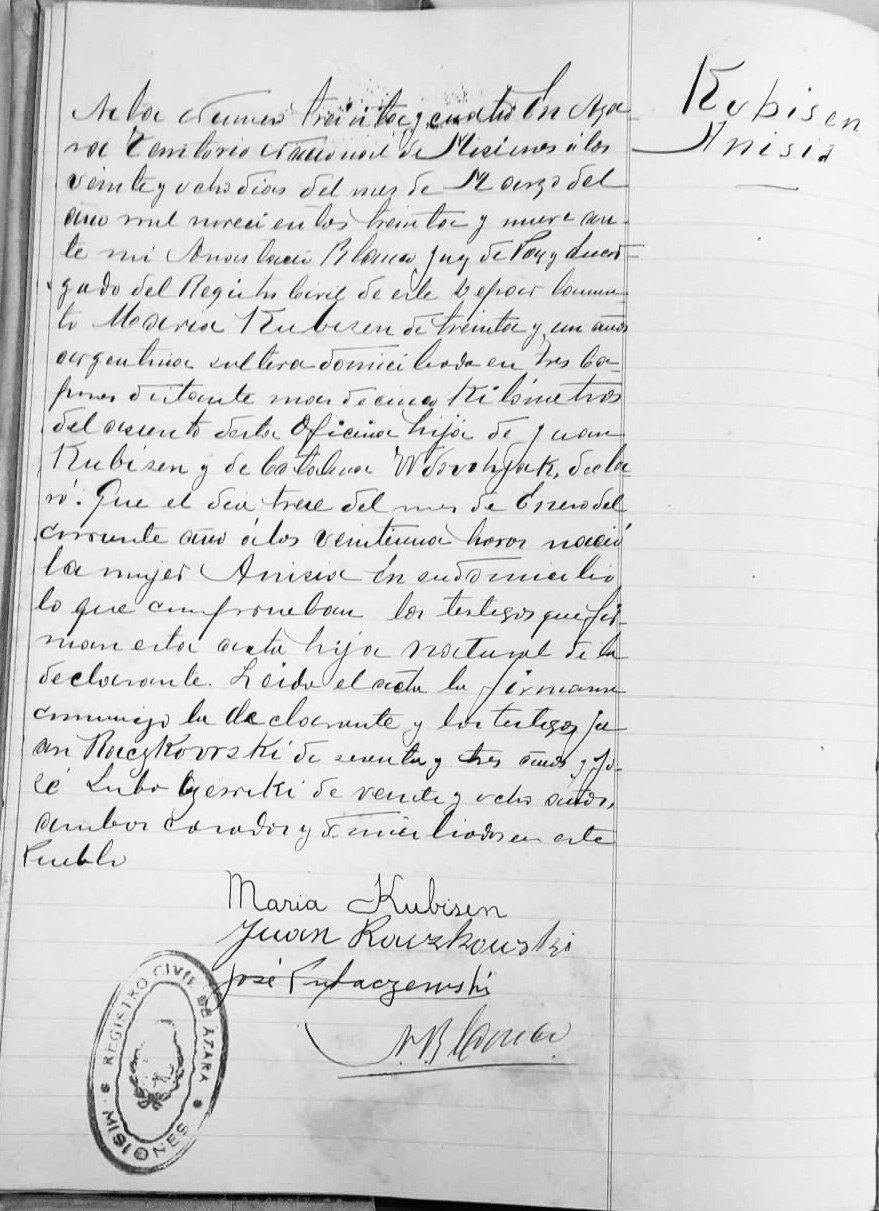 Kubisen
Anisia
Acta número treinta y cuatro En Aza
ra Territorio Nacional de Misiones á los
veinte y ocho dias del mes de Marzo del
año mil novecientos treinta y nueve an-
te mi Anastacio Blanco Juez de Paz y Encar-
gado del Registro Civil de este
to María Kubisen de treinta y un años
argentina soltera domiciliada en Tres Ca-
pones distante mas de cinco Kilómetros
del asiento desta Oficina hija de Juan
Kubisen y de Catalina decla
ró: Que el dia trece del mes de Enero del
corriente año á las veintiuna horas nació
la mujer Anisia en su domicilio
lo que comprueban los testigos que fir-
man esta acta hija natural de la
declarante. Leida el acta la firmaron
conmigo la declarante y los testigos Ju
an Raczkovrski de y tres años y Jo-
sé de veinte y ocho años,
ambos casados y domiciliados en este
Pueblo
Maria Kubisen
Juan Raczkowski
José
A. Blanco
REGISTRO CIVIL DE AZARA
MISIONES